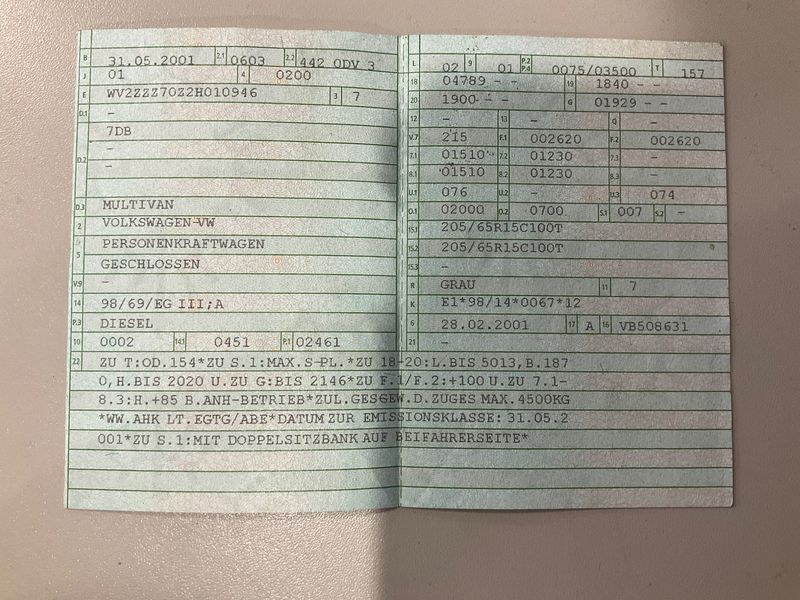 B 31.05.2001 2.1 0603 2.2 442 ODV 3
J 01 4 0200
E WV2ZZZ70Z2H010946 3 7
D.1 –
7DB
D.2 –
–
D.3 MULTIVAN
2 VOLKSWAGEN-VW
5 PERSONENKRAFTWAGEN
GESCHLOSSEN
V.9 –
14 98/69/EG III;A
P.3 DIESEL
10 0002 14.1 0451 P.1 02461
L 02 9 01 P.2 P.4 0075/03500 T 157
18 04789 – – 19 1840 – –
20 1900 – – G 01929 – –
12 – 13 – Q –
V.7 215 F.1 002620 F.2 002620
7.1 01510 7.2 01230 7.3 –
8.1 01510 8.2 01230 8.3 –
U.1 076 U.2 – U.3 074
O.1 02000 O.2 0700 S.1 007 S.2 –
15.1 205/65R15C100T
15.2 205/65R15C100T
15.3 –
R GRAU 11 7
K E1*98/14*0067*12
6 28.02.2001 17 A 16 VB508631
21 –
22 ZU T:OD.154*ZU S.1:MAX.S-PL.*ZU 18-20:L.BIS 5013,B.187
0,H.BIS 2020 U.ZU G:BIS 2146*ZU F.1/F.2:+100 U.ZU 7.1-
8.3:H.+85 B.ANH-BETRIEB*ZUL.GES.GEW.D.ZUGES MAX.4500KG
*WW.AHK LT.EGTG/ABE*DATUM ZUR EMISSIONSKLASSE: 31.05.2
001*ZU S.1:MIT DOPPELSITZBANK AUF BEIFAHRERSEITE*